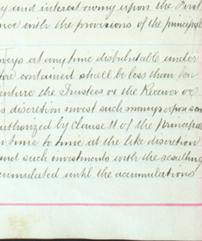 y and interest owing upon the
nce with the provisions of the principal
neys at any time distributable under
fore contained shall be less than
enture the Trustees or the Receiver or
s discretion invest such moneys upon
authorized by Clause 11 of the principal
time to time at the like discretion
and such investments with the resulting
ccumulated until the accumulations